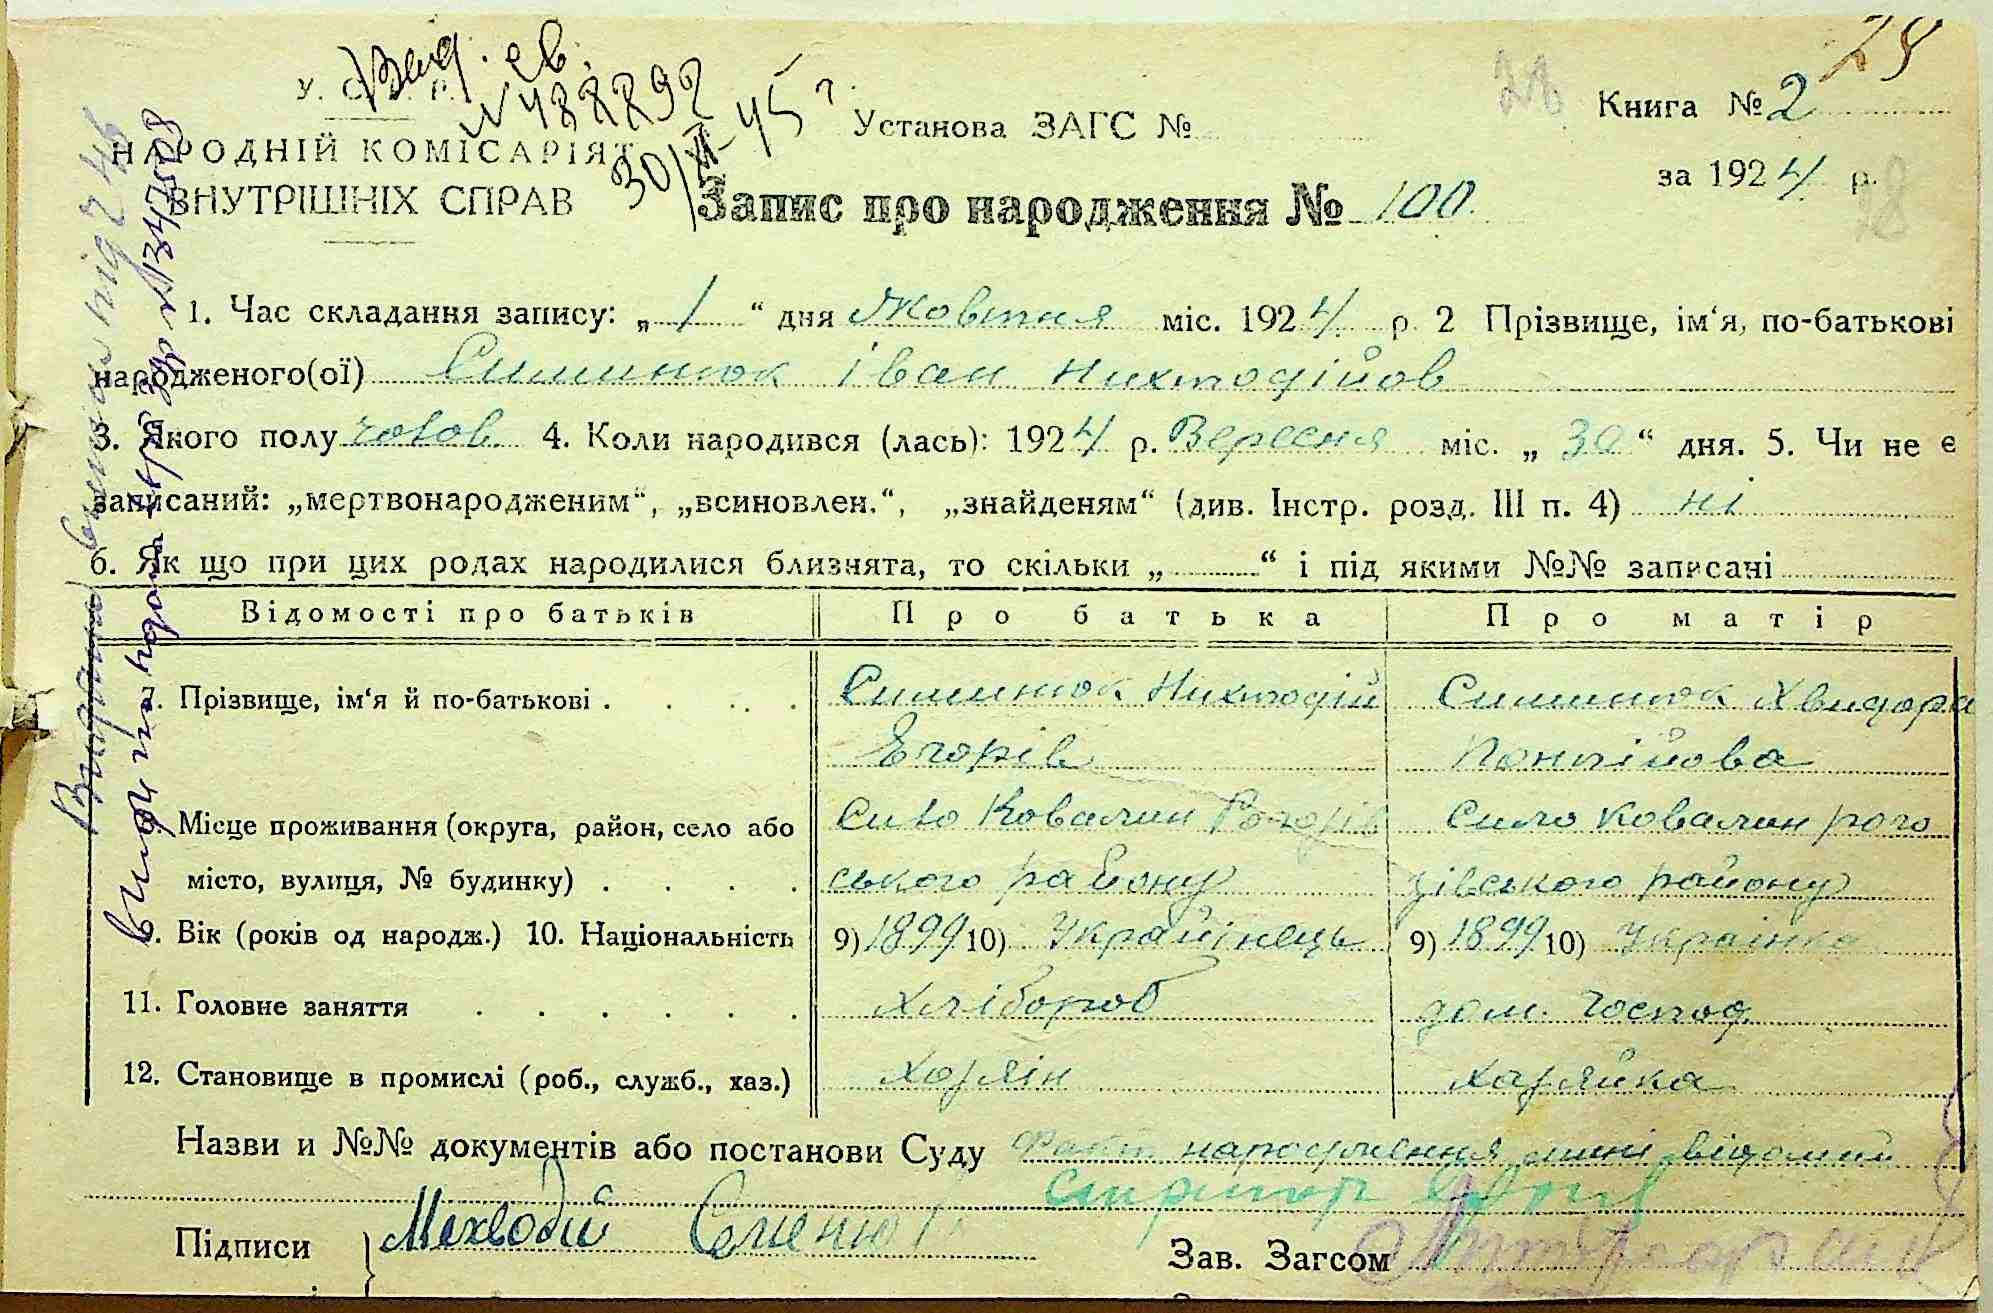 28
28
Книга № 2
У. С. Р. Р.
Вид. св.
№ 488892
30/XI-45 г.
Установа ЗАГС №
НАРОДНІЙ КОМІСАРІЯТ
ВНУТРІШНІХ СПРАВ
за 1924 р.
28
Запис про народження № 100.
1. Час складання запису: „ 1 “ дня Жовтня міс. 1924 р. 2 Прізвище, ім‘я, по-батькові
народженого(ої) Симинюк Іван Нихтодійов
3. Якого полу чолов 4. Коли народився (лась): 1924 р. Вересня міс. „ 30 “ дня. 5. Чи не є
записаний: „мертвонародженим“, „всиновлен.“, „знайденям“ (див. Інстр. розд. III п. 4) ні
6. Як що при цих родах народилися близнята, то скільки „ “ і під якими №№ записані
Відомості про батьків Про батька Про матір
7. Прізвище, ім‘я й по-батькові . Симинюк Нихтодій Симинюк Хвидора
Єгорів Понтійова
8. Місце проживання (округа, район, село або село Ковалин Рогозів село Ковалин рого
місто, вулиця, № будинку) . ського району зівського району
9. Вік (років од народж.) 10. Національність 9) 1899 10) Українець 9) 1899 10) Українка
11. Головне заняття хлібороб дом. господ.
12. Становище в промислі (роб., служб., хаз.) хазяїн хазяйка
Назви и №№ документів або постанови Суду Факт народження мині відомий
Підписи Мехводій
Зав. Загсом